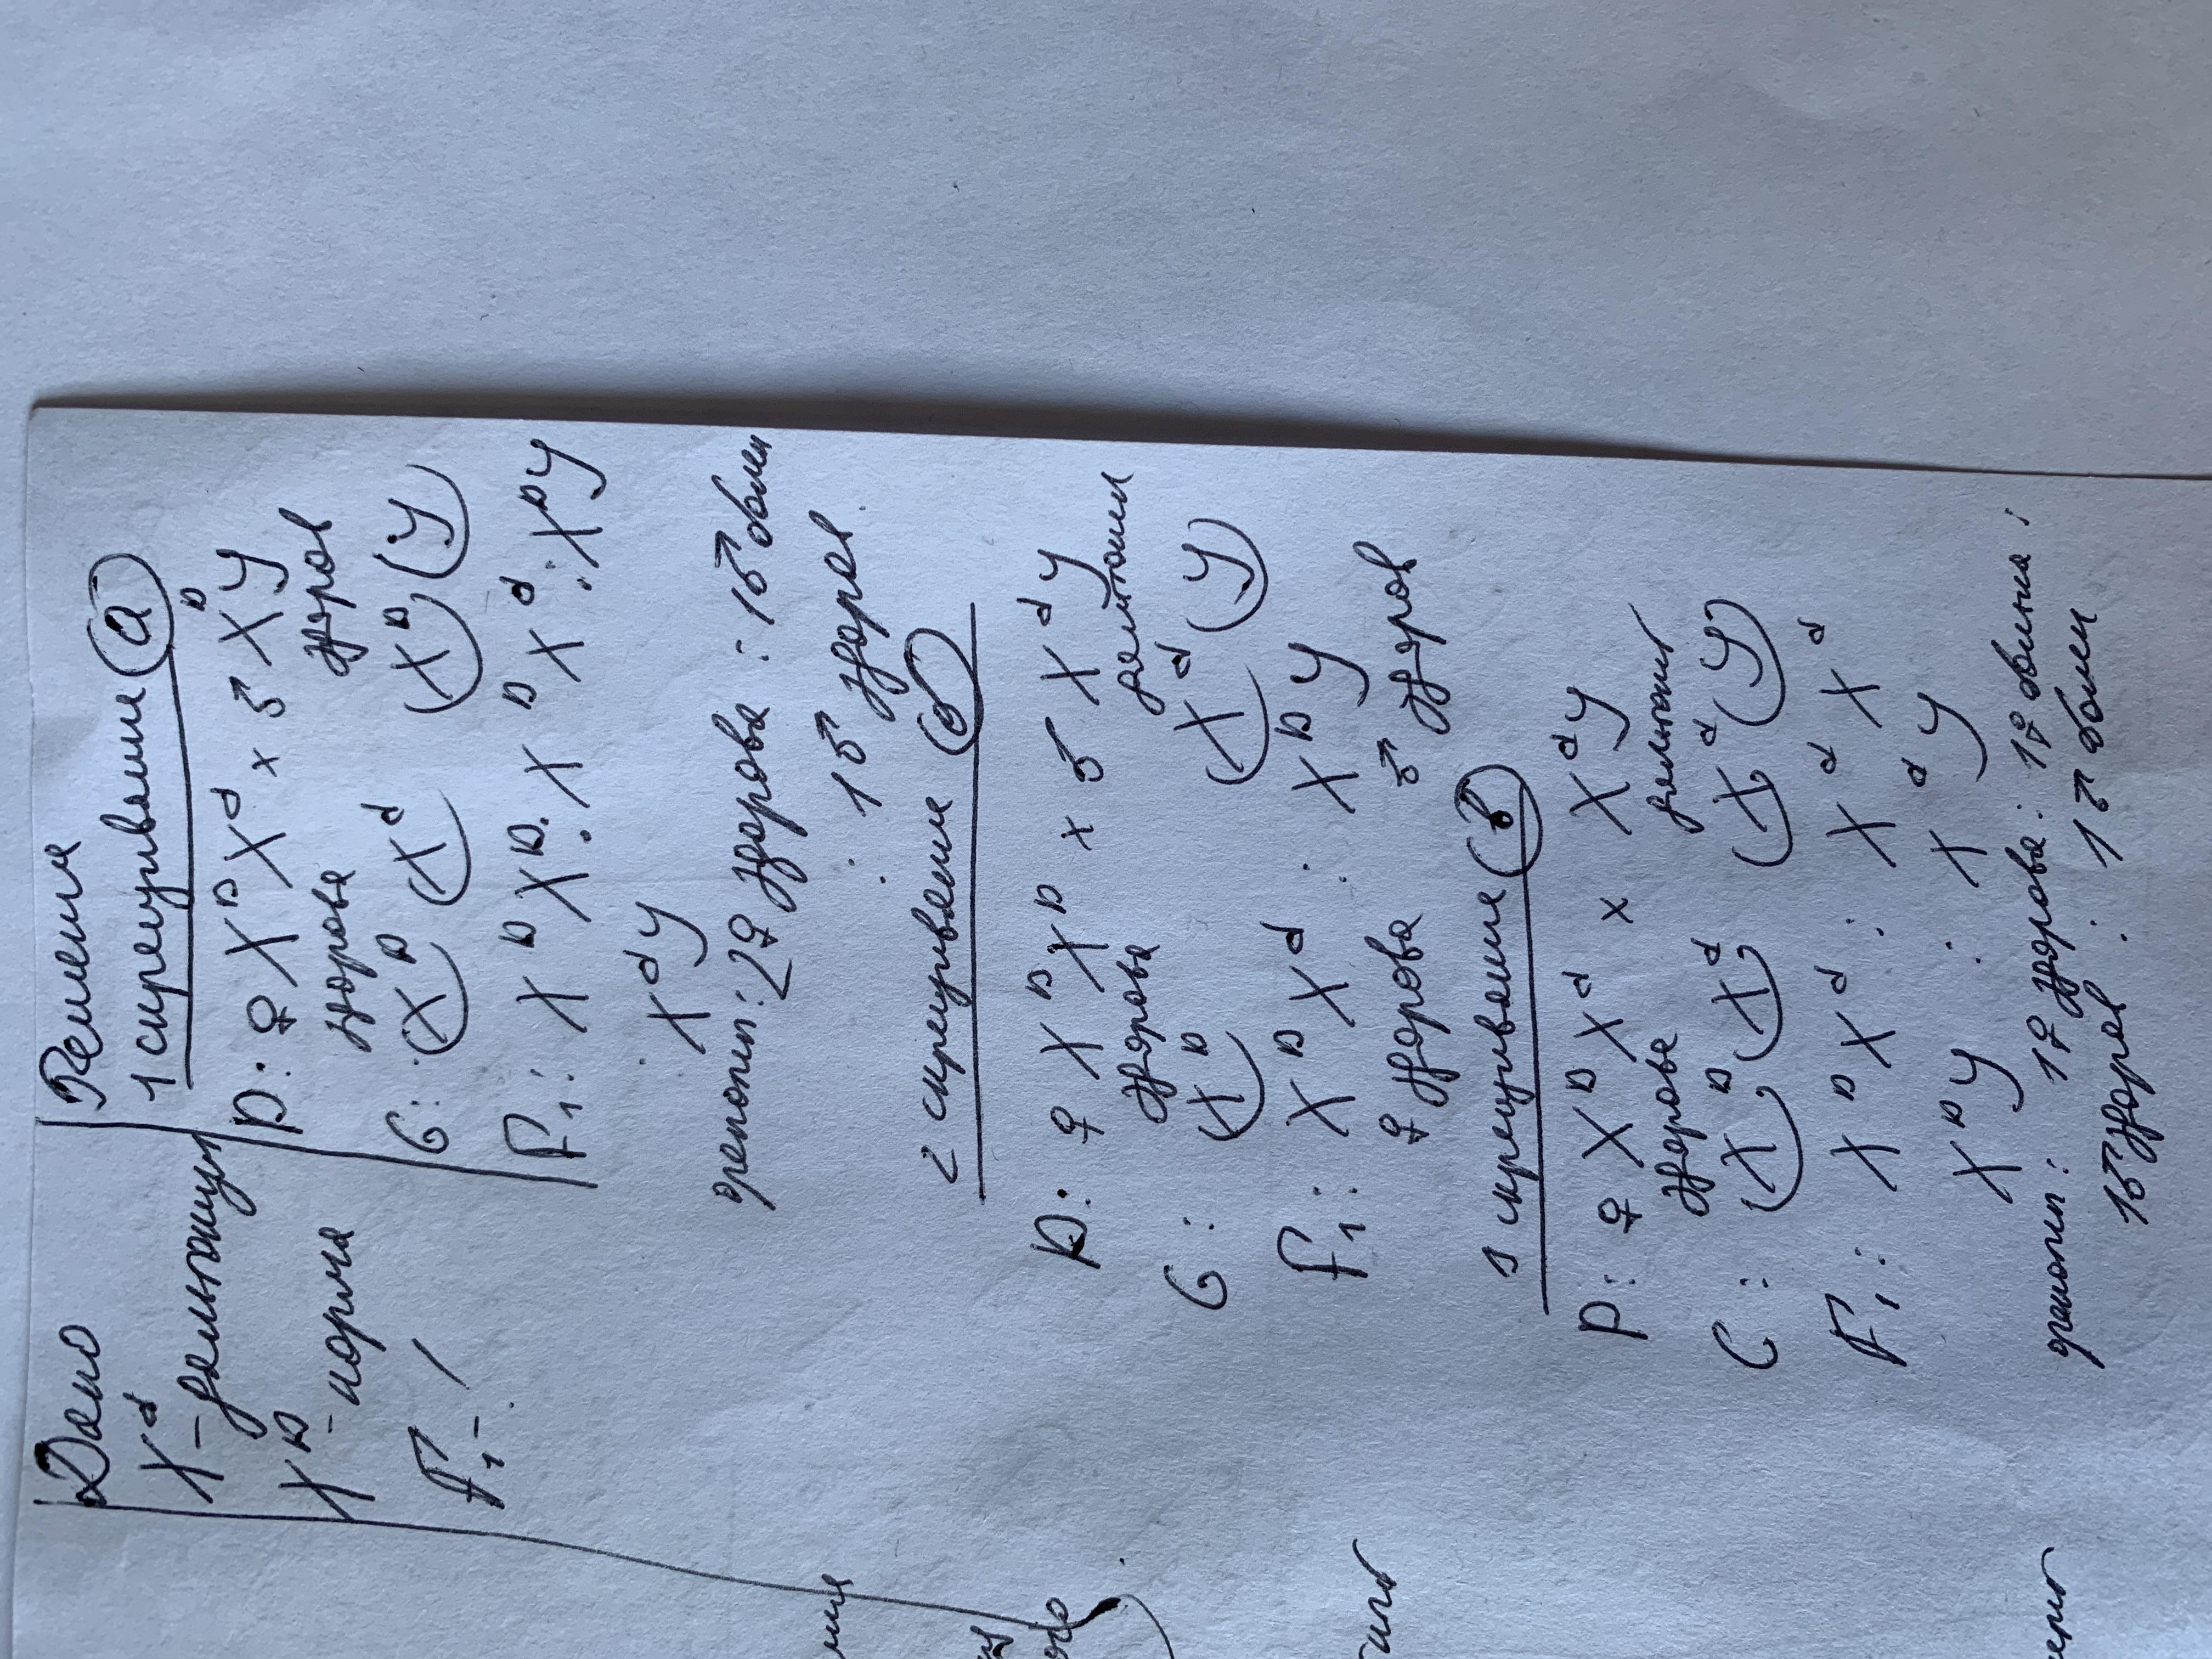 Дано
X^d - дальтонизм
X^D - норма
F₁ - ?
Решение
1 скрещивание (а)
P: ♀ X^D X^d × ♂ X^D Y
здорова здоров
G: X^D X^d X^D Y
F₁: X^D X^D : X^D X^d : X^D Y
: X^d Y
фенотип: 2♀ здорова : 1♂ болен
: 1♂ здоров.
2 скрещивание (б)
P: ♀ X^D X^D × ♂ X^d Y
здорова дальтоник
G: X^D X^d Y
F₁: X^D X^d : X^D Y
♀ здорова ♂ здоров
скрещивание (в)
P: ♀ X^D X^d × X^d Y
здорова дальтоник
G: X^D X^d X^d Y
F₁: X^D X^d : X^d X^d
X^D Y : X^d Y
фенотип: 1♀ здорова : 1♀ больна :
1♂ здоров : 1♂ болен